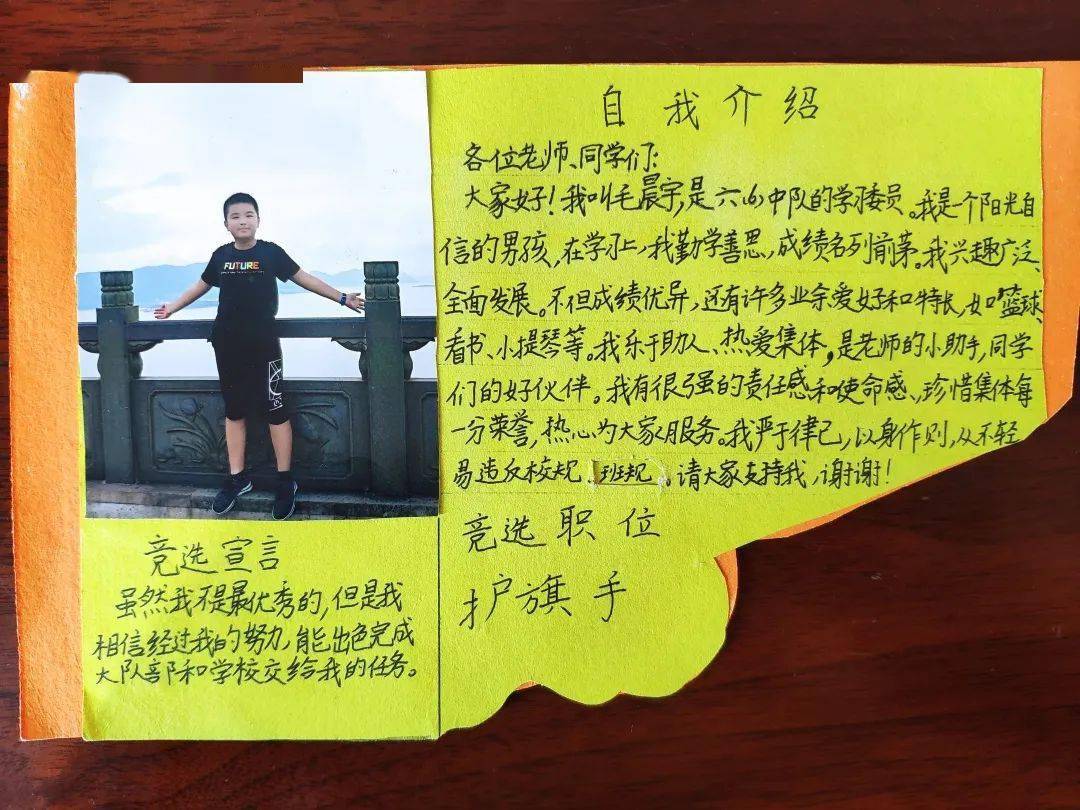 自我介绍
各位老师、同学们:
大家好!我叫毛晨宇,是六(6)中队的学习委员。我是一个阳光自
信的男孩,在学习上,我勤学善思,成绩名列前茅。我兴趣广泛、
全面发展。不但成绩优异,还有许多业余爱好和特长,如篮球、
看书、小提琴等。我乐于助人、热爱集体,是老师的小助手,同学
们的好伙伴。我有很强的责任感和使命感,珍惜集体每
一分荣誉,热心为大家服务。我严于律己,以身作则,从不轻
易违反校规、班规。请大家支持我,谢谢!
竞选职位
护旗手
FUTURE
竞选宣言
虽然我不是最优秀的,但是我
相信经过我的努力,能出色完成
大队部和学校交给我的任务。